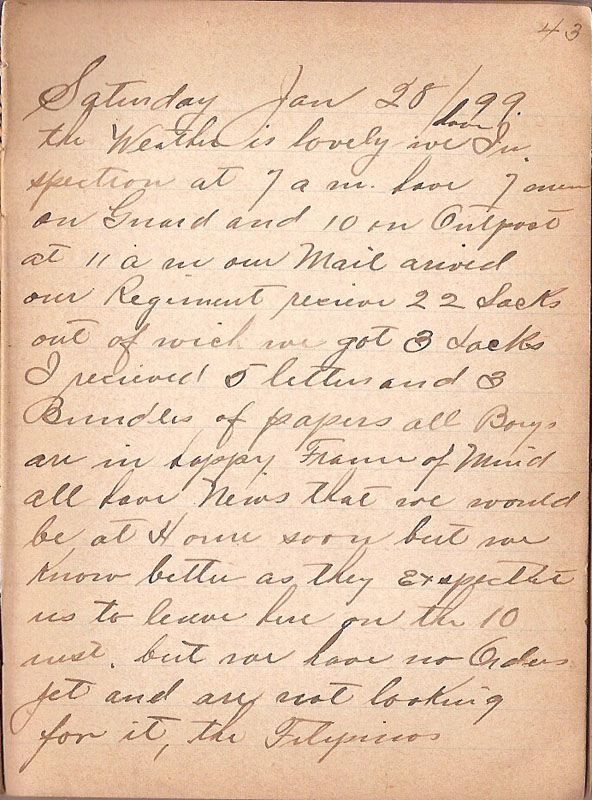 43
Saturday Jan 28/99.
the Weather is lovely we have In
spection at 7 a m. have 7 men
on Guard and 10 on Outpost
at 11 a m our Mail arived
our Regiment recieve 22 Sacks
out of wich we got 3 Sacks
I recieved 5 letters and 3
Bundles of papers all Boys
are in happy Frame of Mind
all have News that we would
be at Home soon but we
know better as they Exspected
us to leave here on the 10
but we have no Orders
jet and are not looking
for it, the Filipinos